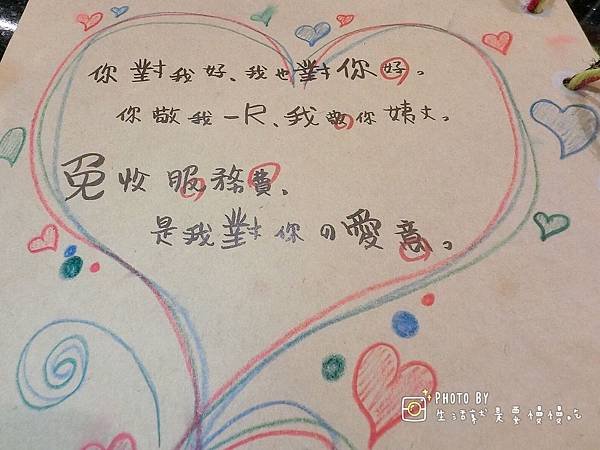 你對我好、我也對你好。
你敬我一R、我敬你姨丈。
免收服務費、
是我對你の愛意。
PHOTO BY
生活就是要慢慢吃